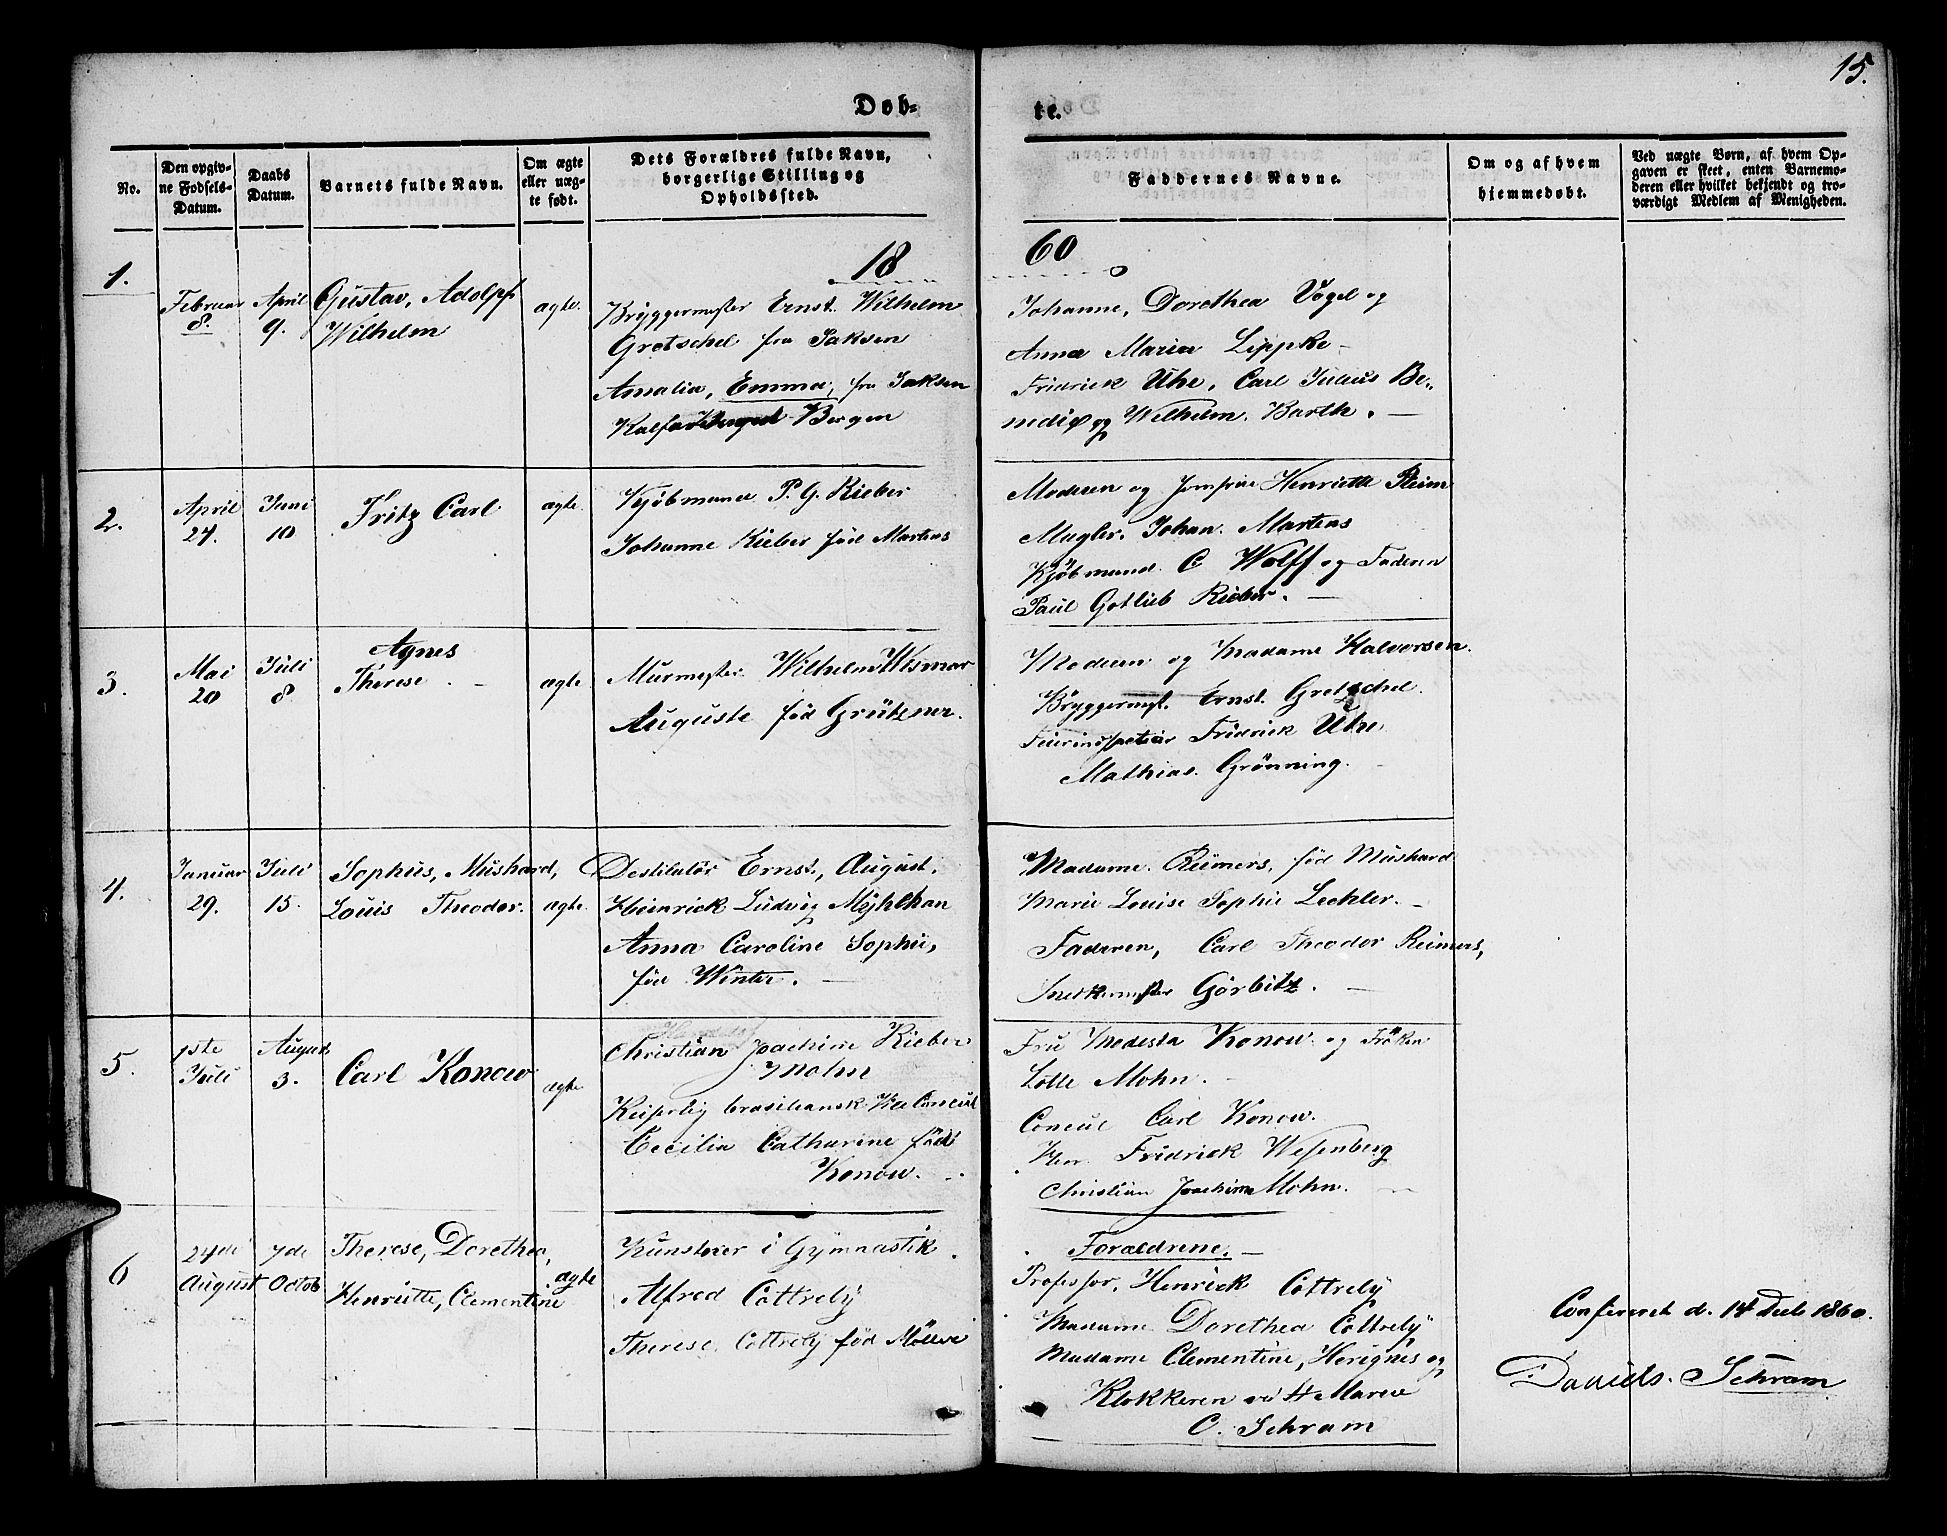 15.
Døb-
te.
No.
Den opgiv-
ne Fødsels-
Datum.
Daabs
Datum.
Barnets fulde Navn.
Om ægte
eller uæg-
te født.
Dets Forældres fulde Navn,
borgerlige Stilling og
Opholdssted.
Faddernes Navne.
Om og af hvem
hjemmedøbt.
Ved uægte Børn, af hvem Op-
gaven er skeet, enten Barnemo-
deren eller hvilket bekjendt og tro-
værdigt Medlem af Menigheden.
18 60
1.
Februar
8.
April
9.
Gustav, Adolpf
Wilhelm
ægte.
Bryggermester Ernst Wilhelm
Gretschel fra Saksen
Amalia, Emma, fra Saksen
Bergen
Johanne, Dorethea Vogel og
Anna Maria Lippke
Fridrick Uhe, Carl Julius Be-
nedix og Wilhelm Barth.
2.
April
27.
Juni
10
Fritz Carl
ægte.
Kjøbmand P. G. Rieber
Johanne Rieber fød Martens
Moderen og Jomfrue Henriette Reim
Mugler. Johan. Martens
Kjöbmand. C Wolff og Faderen
Paul Gotlieb Rieber.
3.
Mai
20
Juli
8
Agnes
Therese
ægte
Murmester Wilhelm Wismar
Auguste fød Grützner.
Moderen og Madame Halvorsen.
Bryggermst. Ernst. Gretschel.
Fridrick Uhe,
Mathias. Grönning.
4.
Januar
29.
Juli
15.
Sophus, Mushard,
Louis Theodor.
ægte.
Destilatör Ernst, August,
Heinrick Ludvig Myhlhan
Anna Caroline Sophie,
fød Winter.
Madame Reimers, fød Mushard
Marie Louise Sophie Lechler.
Faderen, Carl Theodor Reimers,
Snedkermester Görbitz.
5.
1ste
Juli
August
3.
Carl Konow
ægte
Christian Joachim Rieber
Mohn
Keiserlig brasiliansk Vice Consul
Cecilia Catharine född
Konow.
Fru Modesta Konow og Fröken
Lotte Mohn.
Consul Carl Konow.
Herr. Fridrick Wesenberg
Christian Joachim Mohn.
6
24de
August
7de
Octob
Therese, Dorethea,
Henriette, Clementine
ægte
Kunstner i Gymnastik.
Alfred Cottrely
Therese Cottrely fød Möller
Foraeldrene.
Professor, Henrick Cottrely
Madame Dorethea Cottrely
Madame Clementine, Herignes og
Klokkeren ved St Marie
C. Schram
Confereret d. 14 1860.
Daniels. Schram